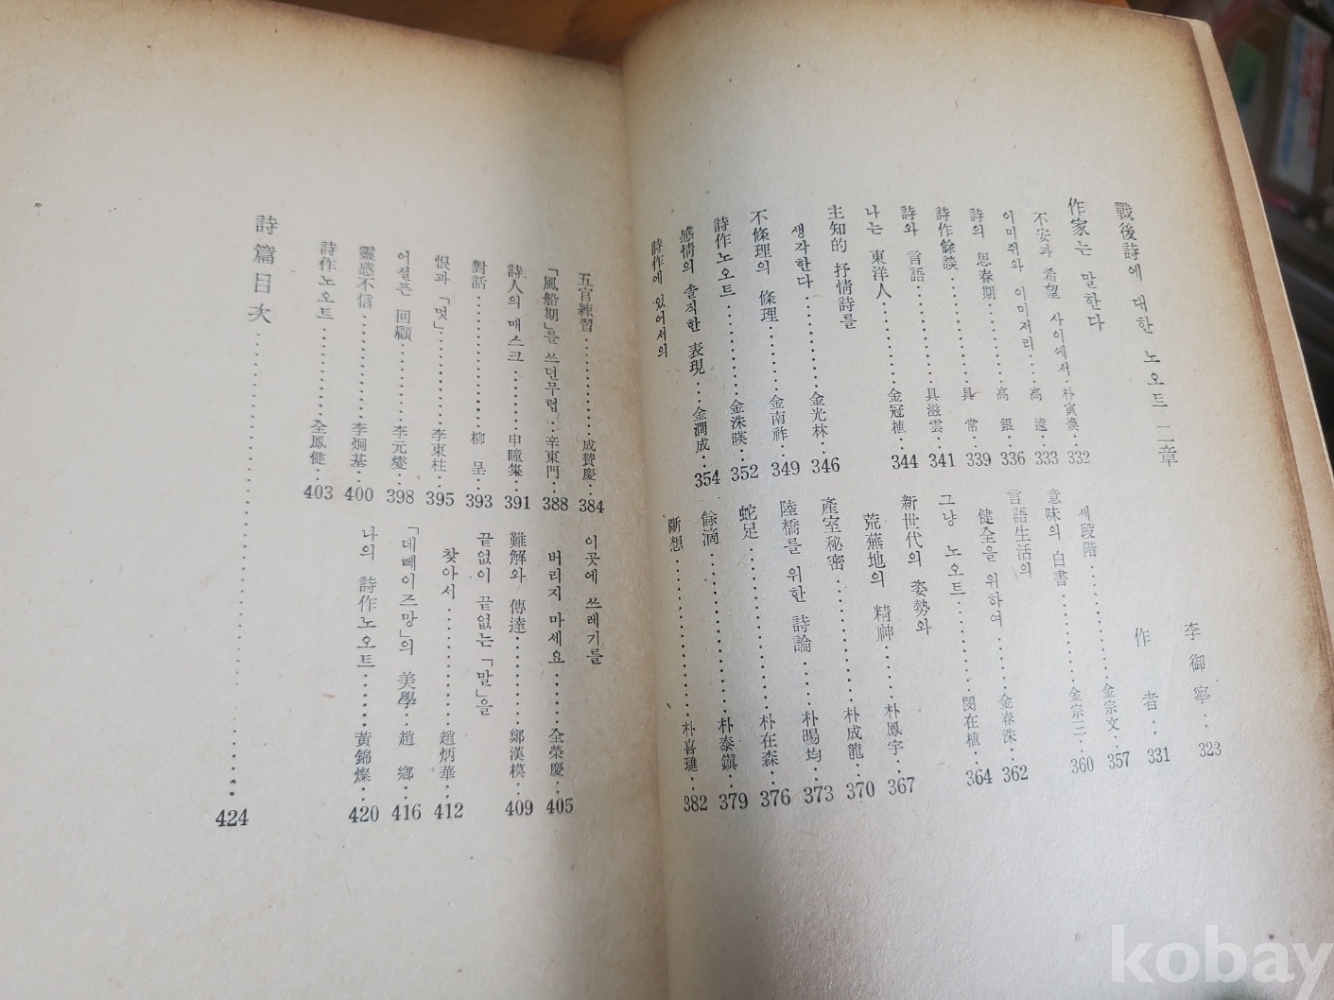 戰後詩에 대한 노오트 二章
李御寧 323
作家는 말한다
作者 331
不安과 希望 사이에서 朴寅煥 332
이미쥐와 이미저리 高遠 333
詩의 思春期 高銀 336
詩作餘談 具常 339
詩와 言語 具滋雲 341
나는 東洋人 金冠植 344
主知的 抒情詩를
생각한다 金光林 346
不條理의 條理 金南祚 349
詩作노오트 金洙暎 352
感情의 솔직한 表現 金潤成 354
詩作에 있어서의
세段階 金宗文 357
意味의 白書 金宗三 360
言語生活의
健全을 위하여 金春洙 362
그냥 노오트 閔在植 364
新世代의 姿勢와
荒蕪地의 精神 朴鳳宇 367
產室秘密 朴成龍 370
陸橋를 위한 詩論 朴暘均 373
蛇足 朴在森 376
餘滴 朴泰鎭 379
斷想 朴喜璡 382
五官練習 成贊慶 384
「風船期」를 쓰던무렵 辛東門 388
詩人의 매스크 申瞳集 391
對話 柳呈 393
恨과 「멋」 李東柱 395
어설픈 回顧 李元燮 398
靈感不信 李炯基 400
詩作노오트 全鳳健 403
이곳에 쓰레기를
버리지 마세요 全榮慶 405
難解와 傳達 鄭漢模 409
끝없이 끝없는 「말」을
찾아서 趙炳華 412
「데뻬이즈망」의 美學 趙鄕 416
나의 詩作노오트 黃錦燦 420
詩篇目次 424
kobay